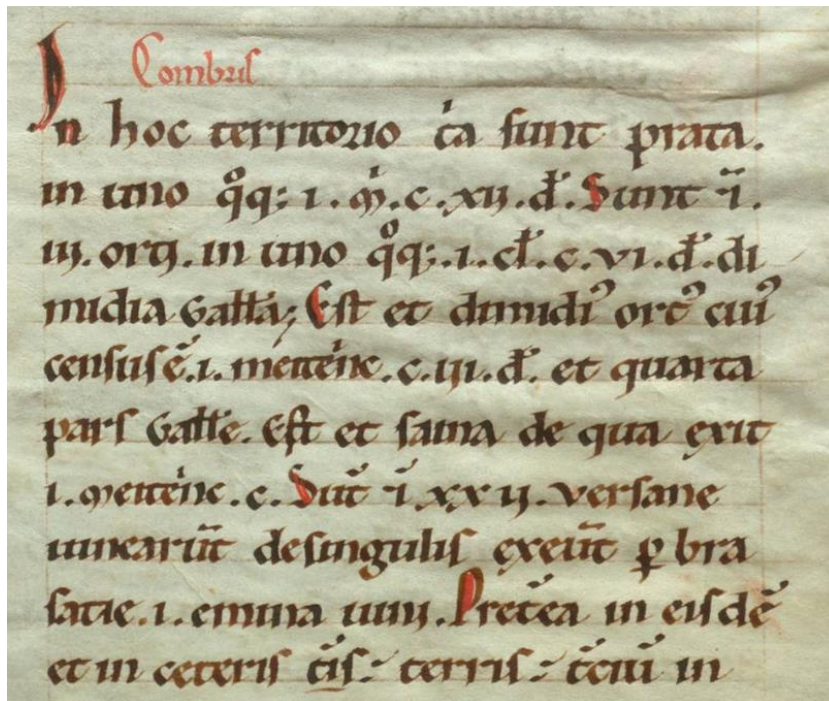 Combris
In hoc territorio t̾ia sunt prata.
in uno q̊q; .i. m̾. c. xii. d̄. Sunt ⁊ ī.
iii. ortj. in uno q̊q; .i. cł. c. vi. d̄. di
midia Gałła; Est et dimidi᾽ ort᾽ cui᾽
census ē .i. meiteñc. c. iii. d̄. et quarta
pars Gałłe. Est et sauna de qua exit
i. meiteñc. c. Sūt ⁊ ī xxii. versane
uinearūt desingulis exeūt ꝑ bra
satie. i. emina uini. Preťea in eisdē
et in ceteris t̄is ⁊ terris ⁊ t̄ciū in